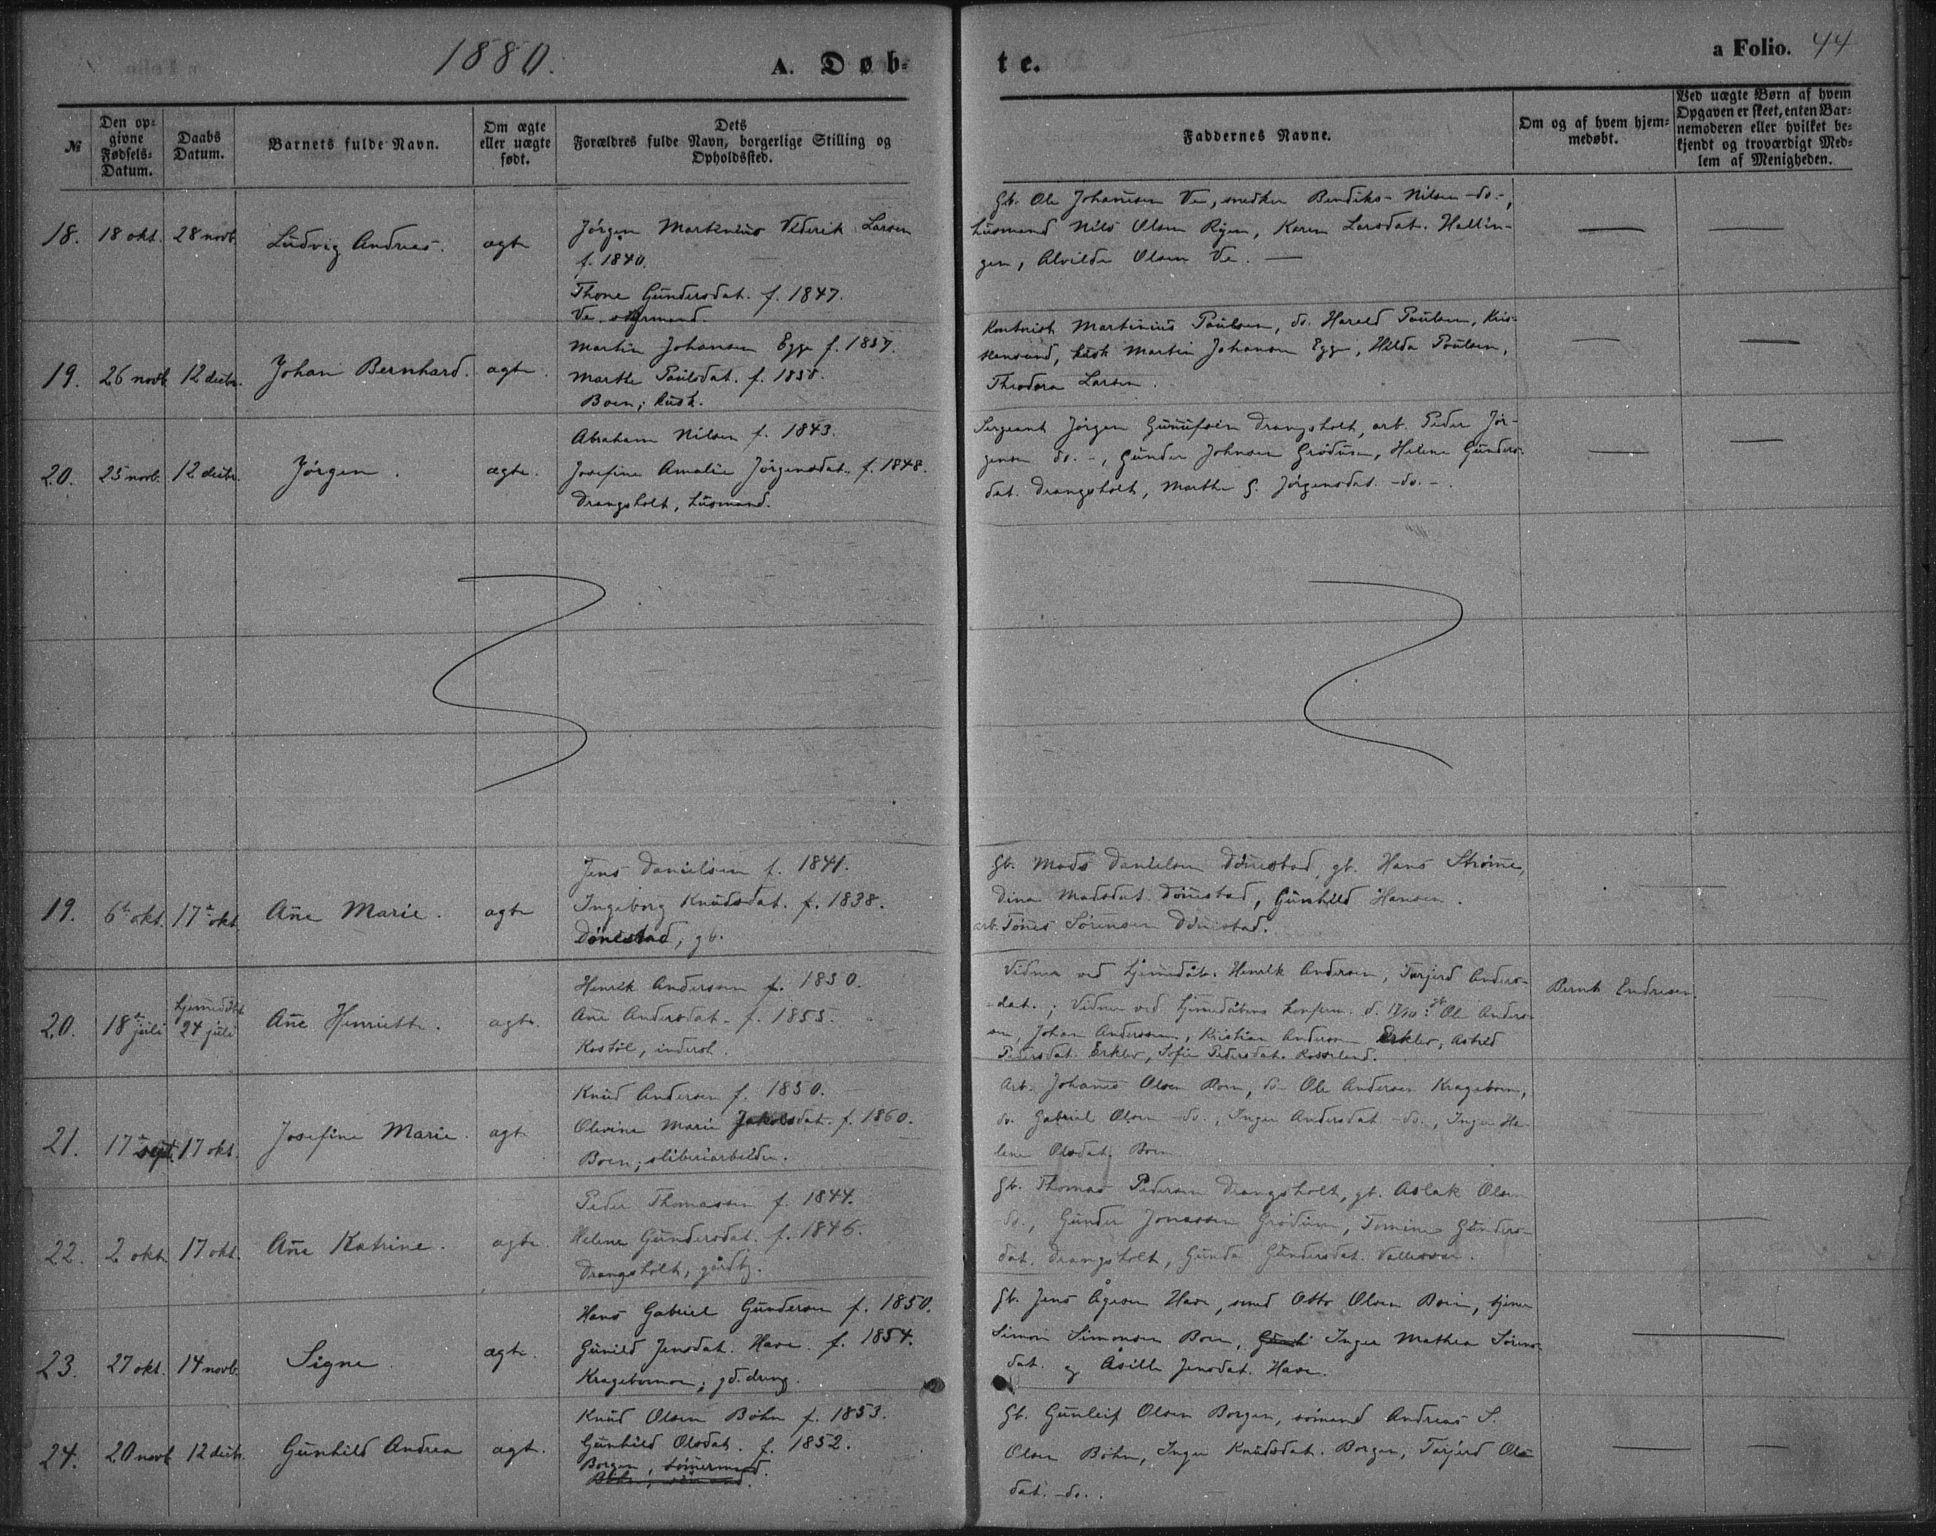 1880.
A. Døb-
te.
a Folio. 44
№
Den op-
givne
Fødsels-
Datum.
Daabs
Datum.
Barnets fulde Navn.
Om ægte
eller uægte
født.
Dets
Forældres fulde Navn, borgerlige Stilling og
Opholdssted.
Faddernes Navne.
Om og af hvem hjem-
medøbt.
Ved uægte Børn af hvem
Opgaven er skeet, enten Bar-
nemoderen eller hvilket be-
kjendt og troværdigt Med-
lem af Menigheden.
18. 18 okt. 28 novb. Ludvig Andreas. ægte
Jörgen Martinius Larsen
f. 1840.
Thone Gundersdat. f. 1847.
Ve.
Gb. Ole Johannesen Ve, snedker Bendiks Nilsen -do-,
husmand Nils Olsen Ryen, Karen Larsdat. Hallin-
gen, Alvilde Olsen Ve.
19. 26 novb 12 decbr. Johan Bernhard. ægte
Martin Johansen Egge f. 1857.
Marthe Paulsdat. f. 1858.
Boen; kusk.
Kontorist Martinius Paulsen, do. Harald Paulsen, Kris-
stensand, kusk Martin Johansen Egge, Hilda Paulsen,
Theodora Larsen.
20. 25 novb. 12 decbr. Jörgen. ægte.
Abraham Nilsen f. 1843.
Josefine Amalie Jörgensdat. f. 1848.
Drangsholt, husmand.
Sergeant Jörgen Gunufsen Drangsholt, arb. Peder Jör-
gensen do. -, Gunder Johnsen Grödum, Helene Gunders-
dat. Drangsholt, Marthe G. Jörgensdat. -do.-.
19. 6te okt. 17te okt. Ane Marie. ægte
Jens Danielsen f. 1841.
Ingeborg Knudsdat. f. 1838.
Dönestad, gb.
Gb. Mads Danielsen Dönestad, gb. Hans Strömme,
Dina Madsdat. Dönestad, Gunhild Hansen.
arb. Tönes Sörensen Dönestad.
20. 18te juli hjemmedöbt 24 juli Ane Henriette. ægte.
Henrik Andersen f. 1850.
Ane Andersdat. f. 1855.
Kostöl, inderst.
Vidner ved hjemmedåb: Henrik Andersen, Tarjerd Anders-
dat.; Vidner ved hjemmedåbens konfirm. d. 17/10: Ole Anders-
sen, Johan Andersen, Kristian Andersen Erklev, Astrid
Pedersdat. Erklev, Sofie Pedersdat. Rosseland.
Bernt Endresen.
21. 17te sept. 17 okt. Josefine Marie. ægte
Knud Andersen f. 1850.
Olevine Marie Jakobsdat. f. 1860.
Boen; sliberiarbeider.
Arb. Johannes Olsen Boen, do. Ole Andersen Krageboen,
do. Gabriel Olsen -do., Inger Andersdat -do., Inger He-
lene Olsdat. Boen
22. 2 okt. 17 okt. Ane Katrine. ægte.
Peder Thomassen f. 1844.
Helene Gundersdat. f. 1846.
Drangsholt, gårdbr.
Gb. Thomas Pedersen Drangsholt, gb. Aslak Olsen
-do., Gunder Jonassen Grödum, Tomine Gunders-
dat. Drangsholt, Gunda Gundersdat.
23. 27 okt. 14 novb. Signe. ægte.
Hans Gabriel Gundersen f. 1850.
Gunild Jensdat. Have. f. 1854.
Krageboen; gd. dreng.
Gb. Jens Ågesen Have, smed Otto Olsen Boen, tjener
Simon Simonsen Boen, Inger Mathea Sörens-
dat. og Åsille Jensdat. Have.
24. 20 novb 12 decbr. Gunhild Andrea ægte.
Knud Olsen Böhn f. 1853.
Gunhild Olsdat. f. 1852.
Borgen, tömmermand.
Gb. Gunleif Olsen Borgen, sömand Andreas S.
Olsen Böhn, Inger Knudsdat. Borgen, Tarjerd Ols-
dat. -do..